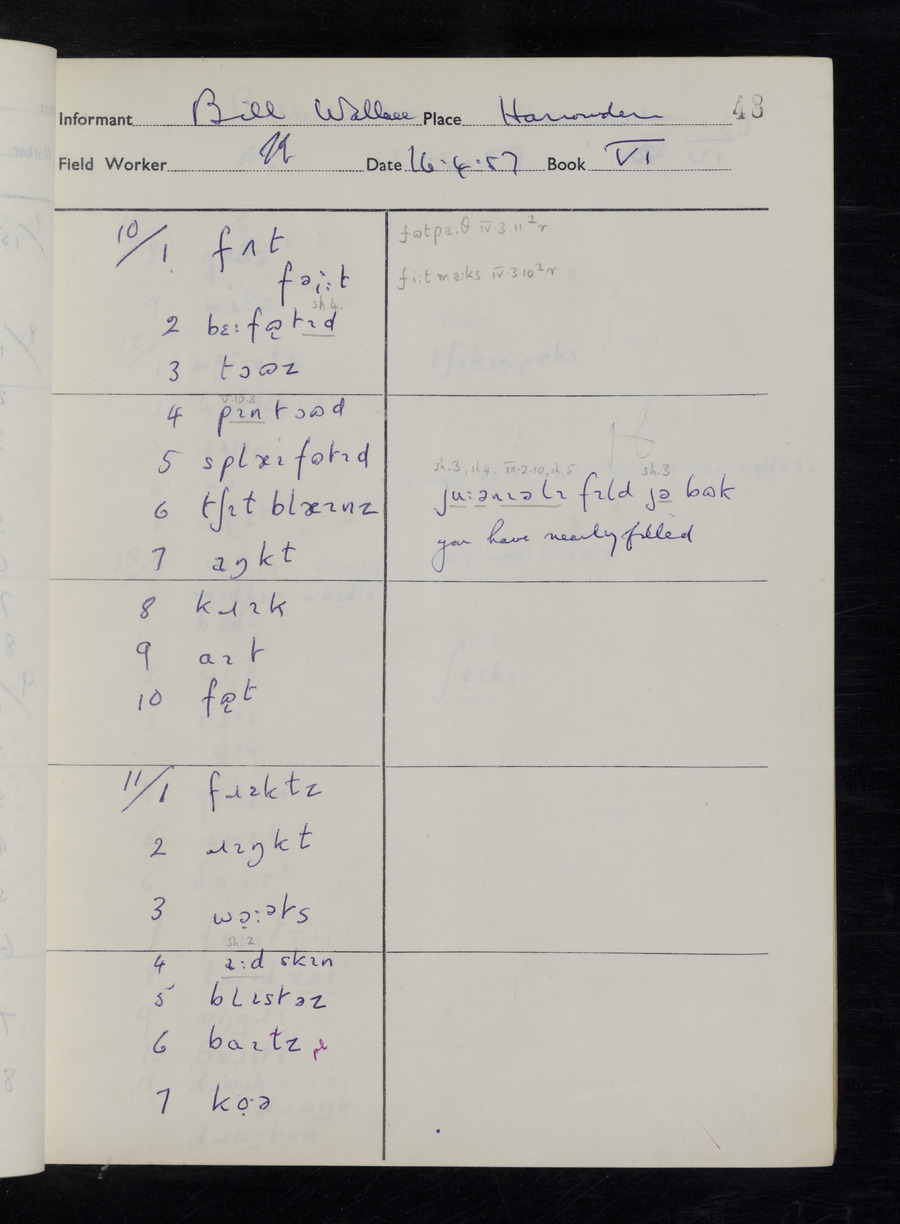 Informant Bill Wallace Place Harrowden 48
Field Worker Date 16·4·57 Book VI
10/1 fʌt
fəi:t
fɷtpa:θ IV·3·11
fi:t ma:ks IV·3·10
sh.4.
2 bɛ:fɷtɪd
3 tɔɷz
V.10.8
4 pɪn tɔɷd
5 splæɪfɷtɪd
sh.3, sh.4. IX·2·10, sh.5 sh.3
6 tʃɪt blæɪnz
ju:ənɪəlɪ fɪld jə bɷk
you have nearly filled
7 aŋkt
8 kɹɪk
9 aɪt
10 fɷt
11/1 fɹɪktz
2 ɹɪŋkt
3 wə:əts
sh.2
4 a:d skɪn
5 blɪstəz
6 baɪtz pl
7 kɔə